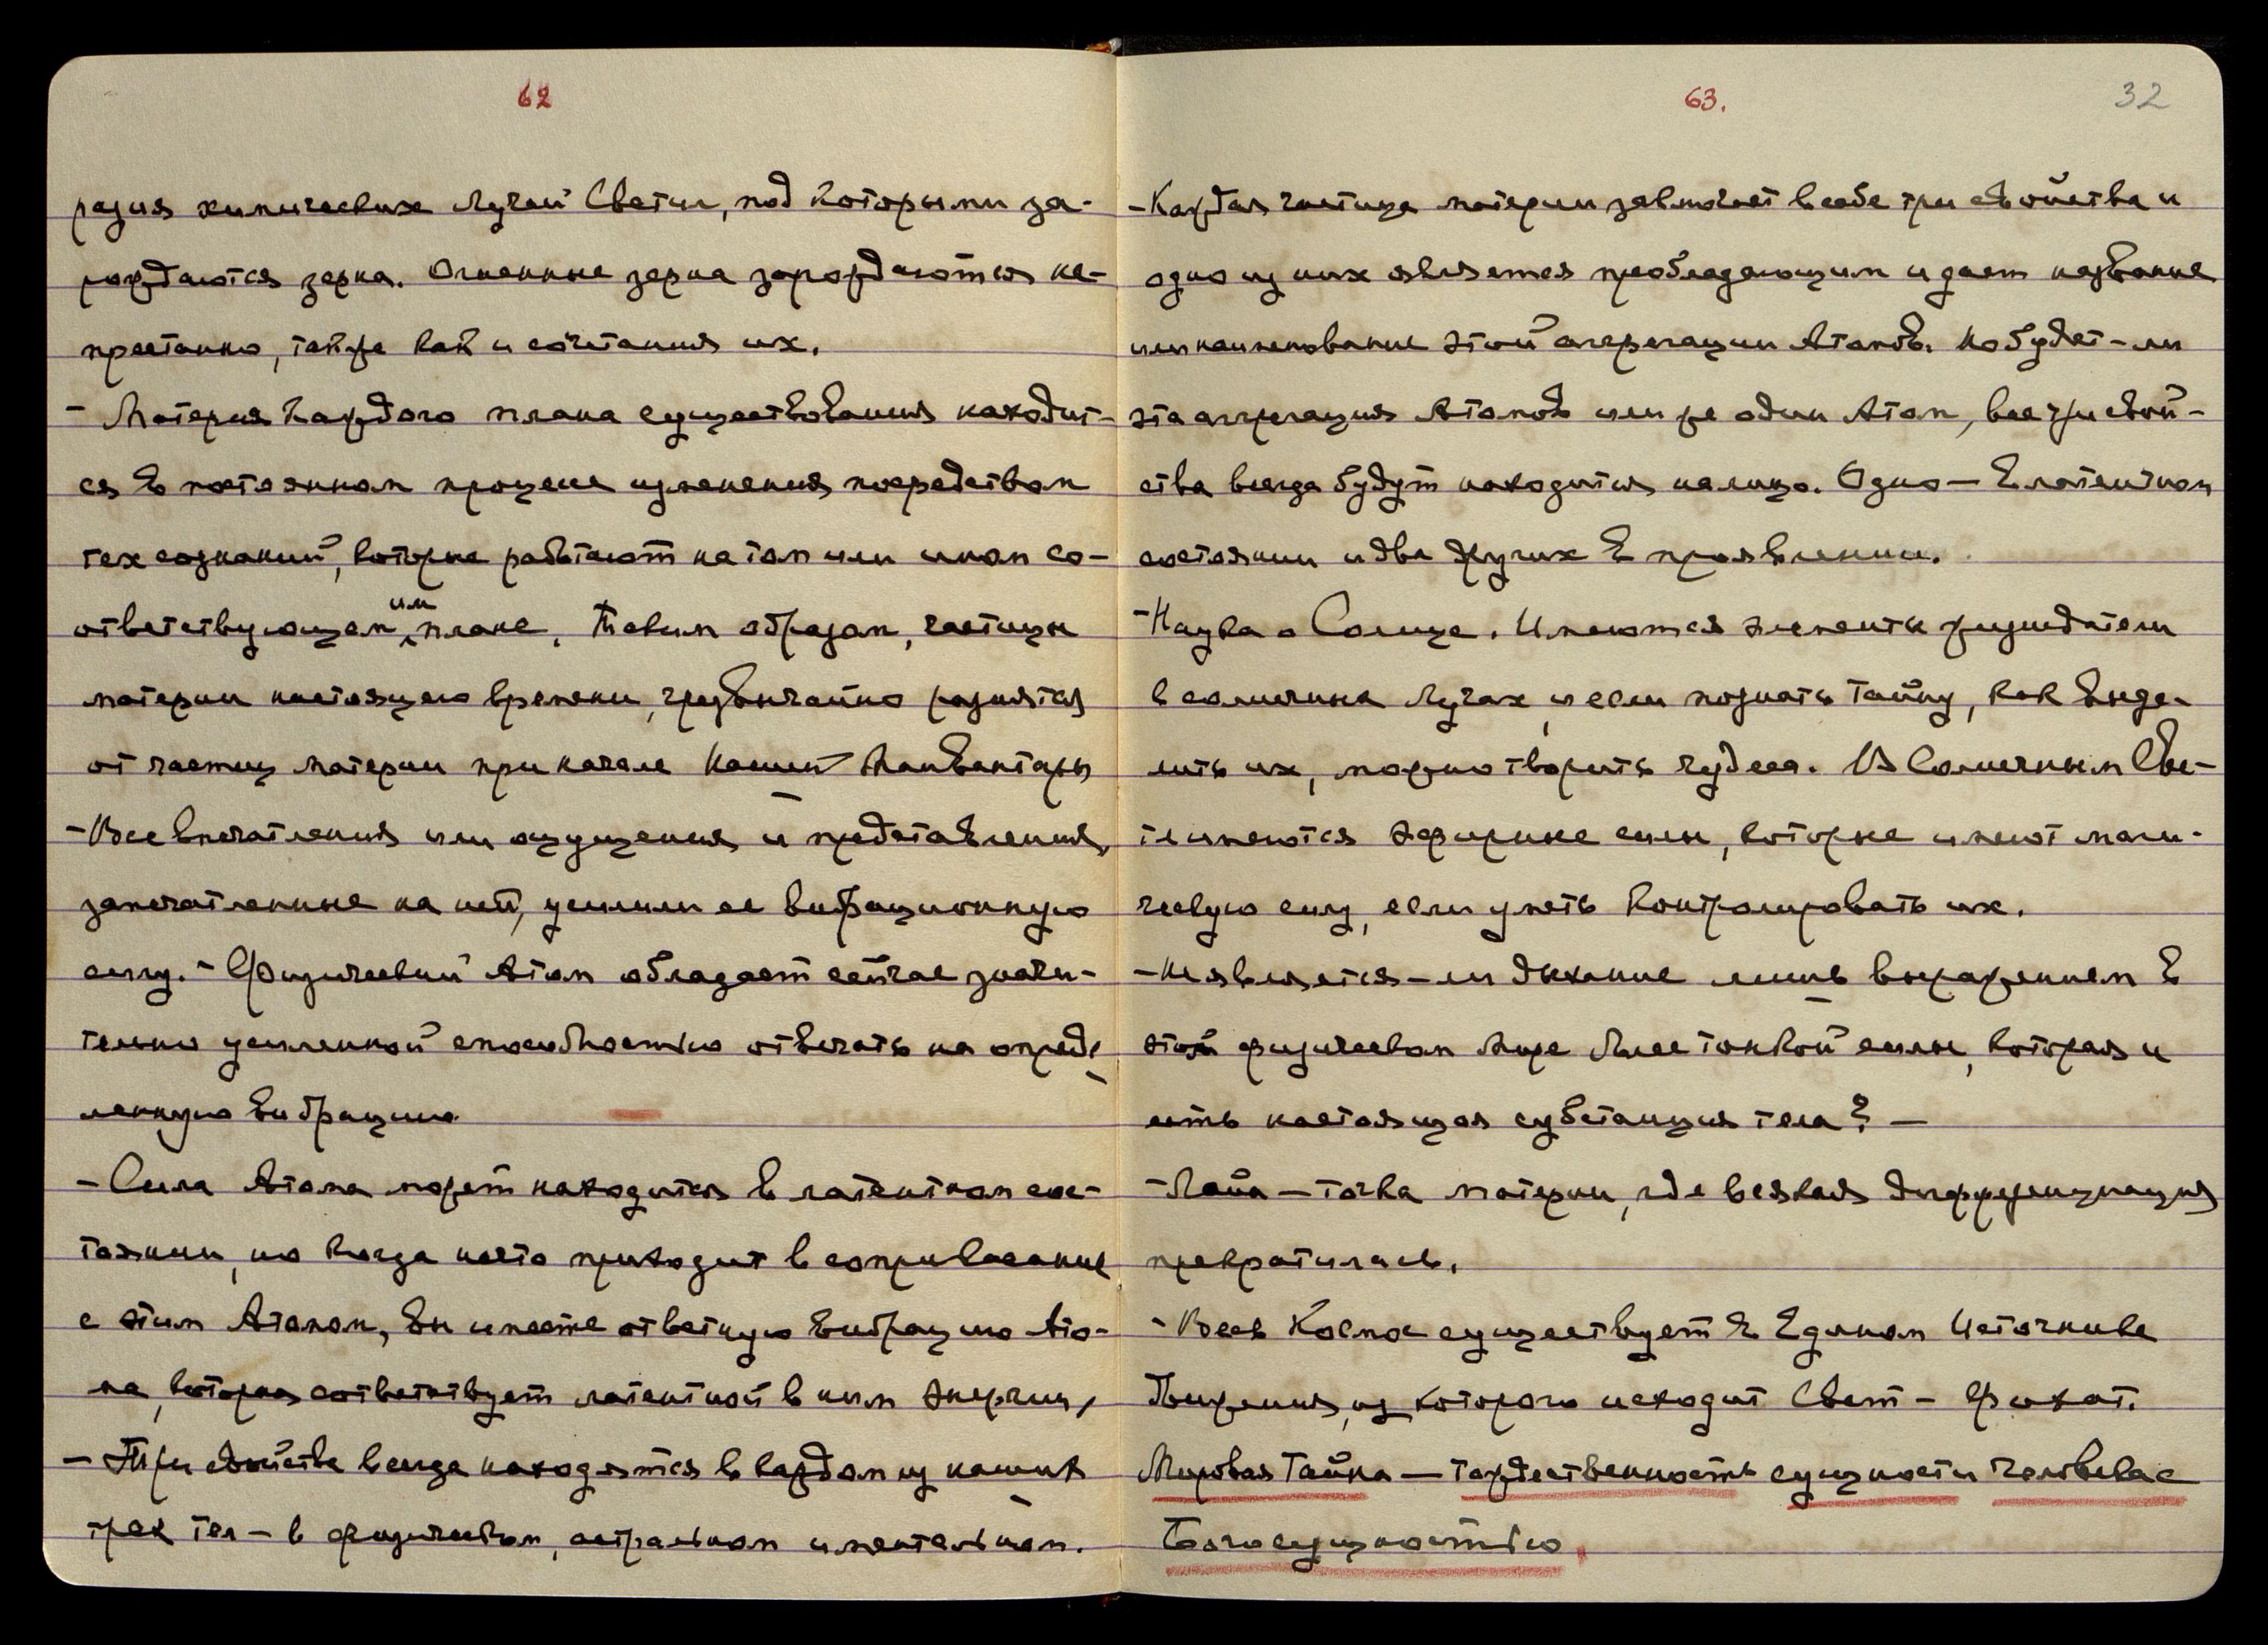 62
радия химических лучей Светил, под которыми за-
рождаются зерна. Огненные зерна зарождаются не-
престанно, также как и сочетания их.
- Материя каждого плана существования находит-
ся в постоянном процессе изменения посредством
тех сознаний, которые работают на том или ином со-
ответствующем им плане. Таким образом, частицы
материи настоящего времени, чрезвычайно разнятся
от частиц материи при начале нашей Манвантары
- Все впечатления или ощущения и представления,
запечатленные на ней, усилили ее вибрационную
силу. - Физический Атом обладает сейчас значи-
тельно усиленной способностью отвечать на опреде
ленную вибрацию
- Сила Атома может находиться в латентном сос-
тоянии, но когда нечто приходит в соприкасание
с этим Атомом, вы имеете ответную вибрацию Ато-
ма, которая соответствует латентной в нем энергии,
- Три свойства всегда находятся в каждом из наших
трех тел - в физическом, астральном и ментальном.
63.
32
- Каждая частица материи заключает в себе три свойства и
одно из них является преобладающим и дает название
или наименование этой агрегации Атомов. Но будет-ли
эта аггрегация Атомов или же один Атом, все три свой-
ства всегда будут находиться налицо. Одно - в латентном
состоянии и два других в проявлении.
- Наука о Солнце. Имеются элементы зиждители
в солнечных лучах, и если познать тайну, как выде-
лить их, можно творить чудеса. В Солнечным Све-
те имеются эфирные силы, которые имеют маги-
ческую силу, если уметь контролировать их.
- Не является-ли дыхание лишь выражением в
этом физическом мире более тонкой силы, которая и
есть настоящая субстанция тела? -
- Лайа - точка материи, где всякая дифференциация
прекратилась.
- Весь Космос существует в Едином Источнике
Энергии, из которого исходит Свет - Фохат.
Мировая Тайна - тождественность сущности человека с
Богосущностью.